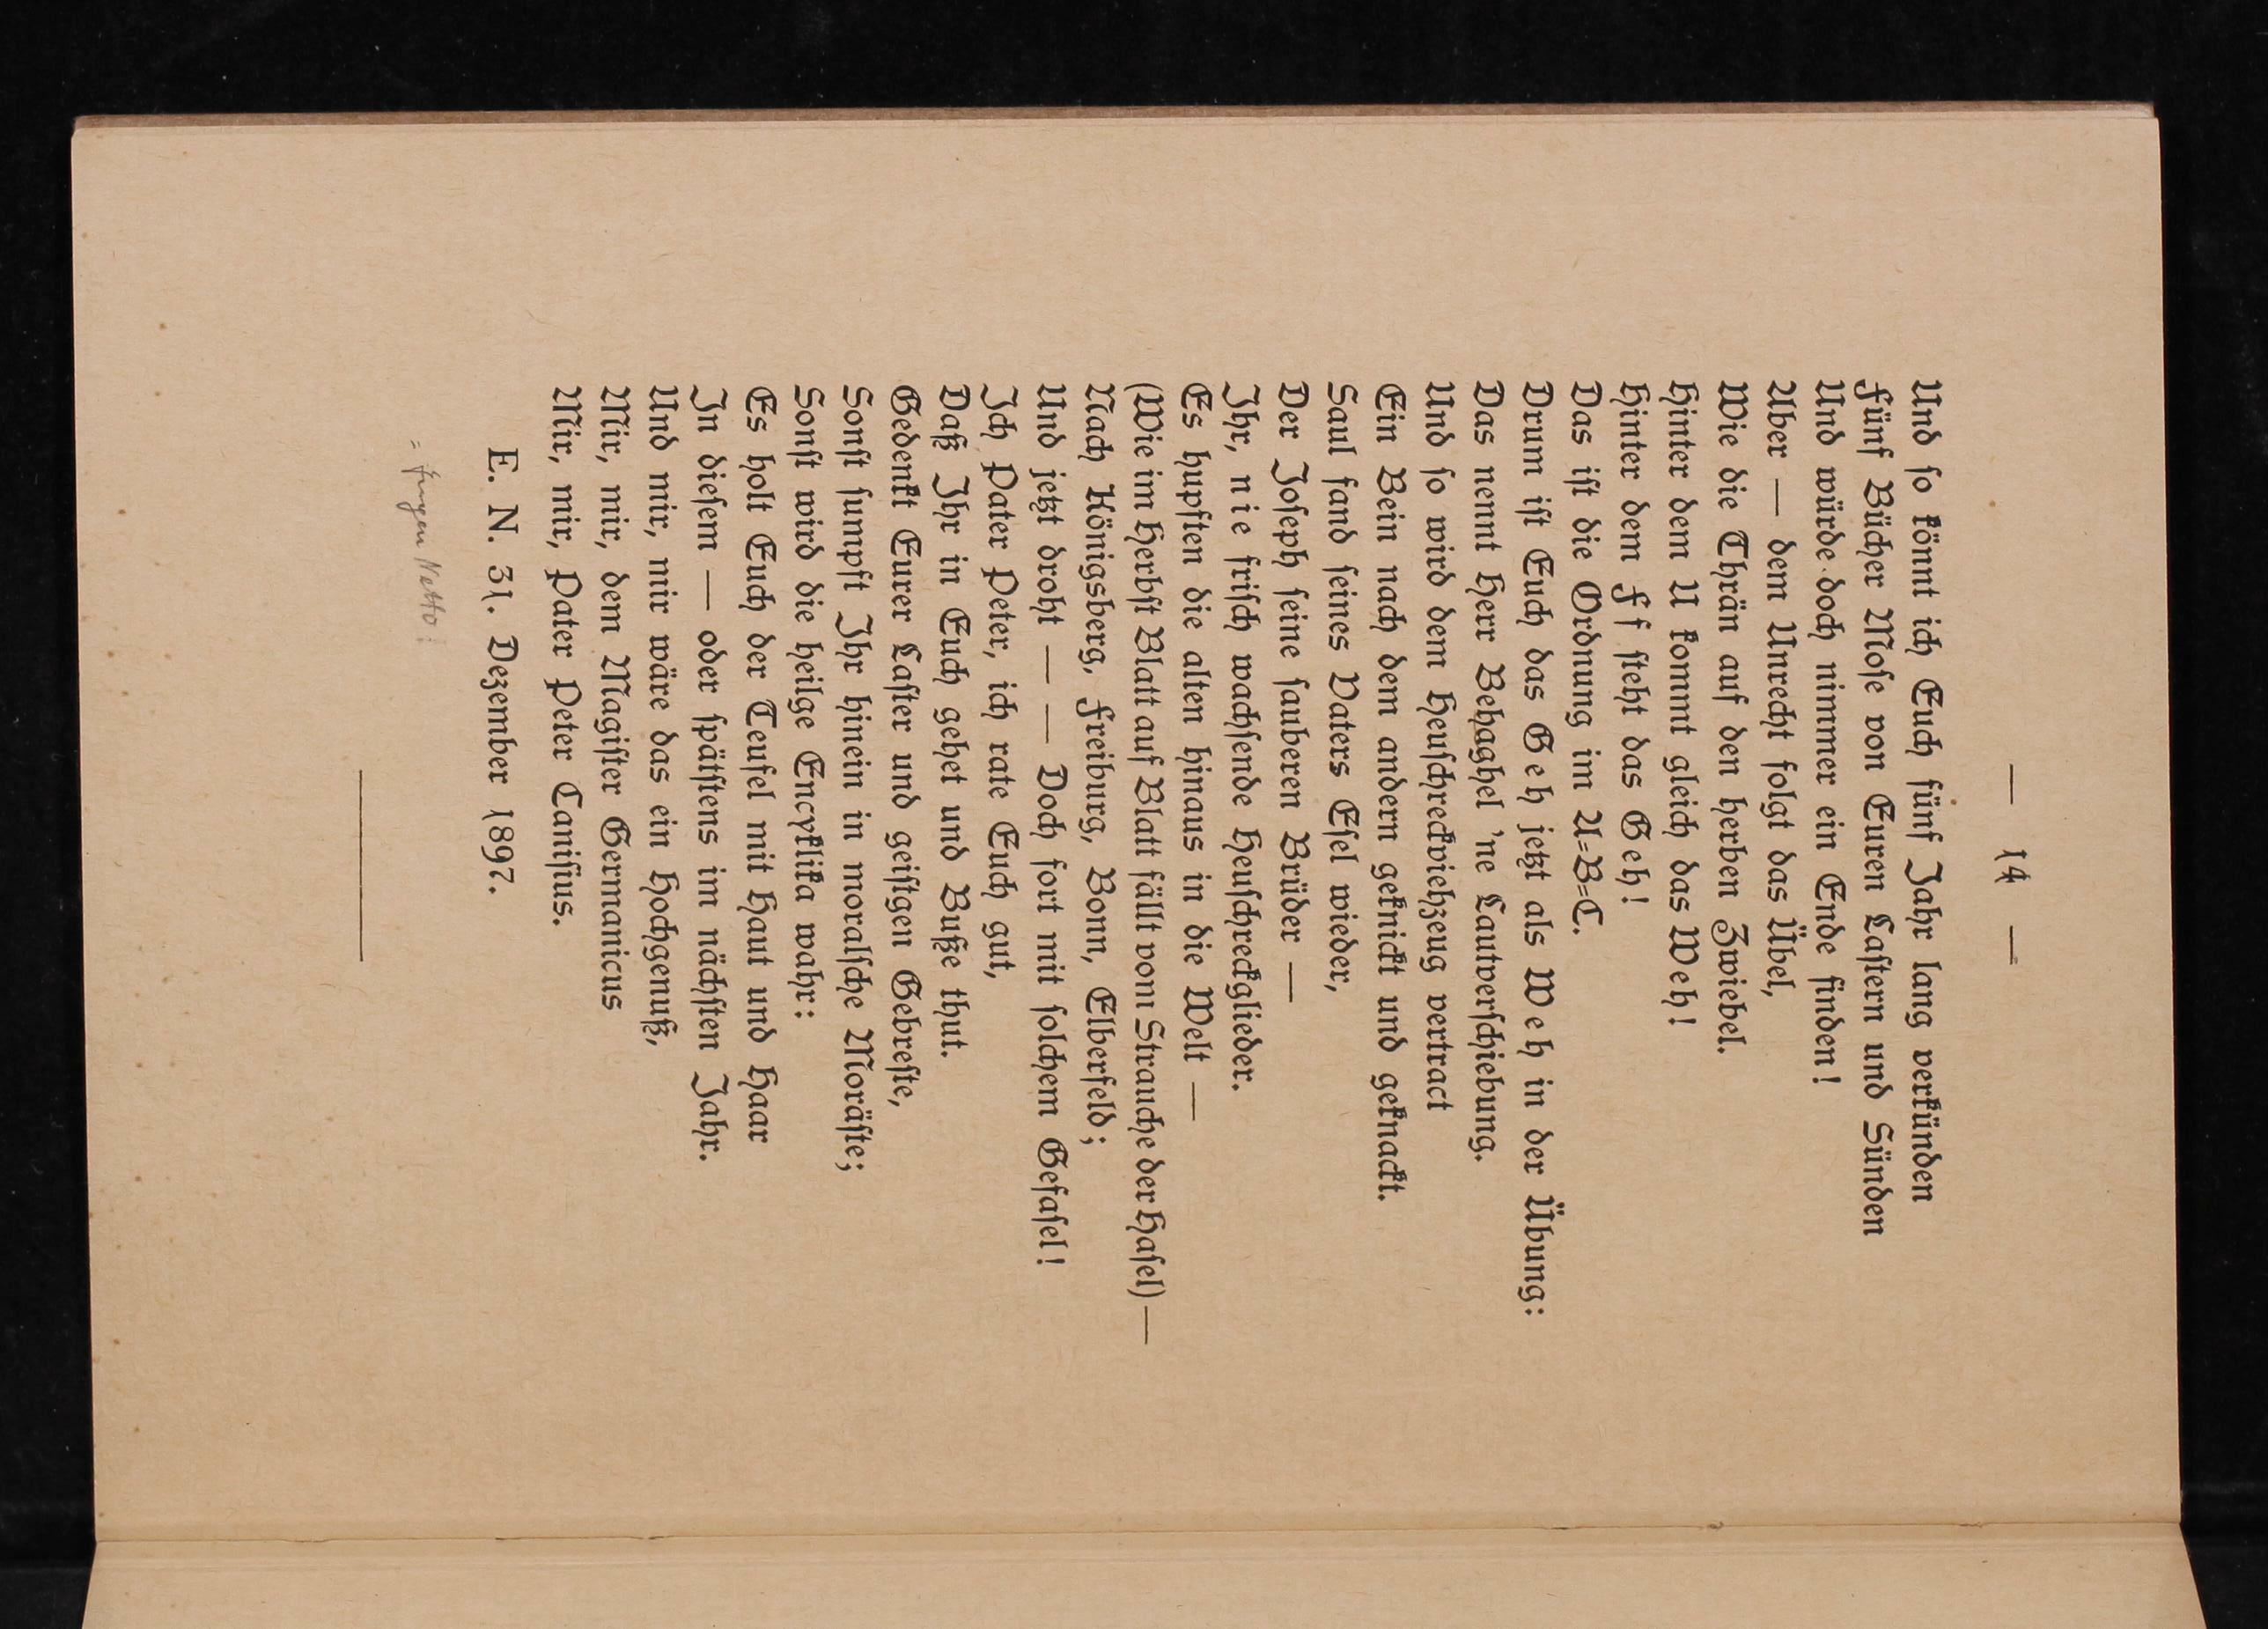 — 14 —
Und ſo könnt ich Euch fünf Jahr lang verkünden
Fünf Bücher Moſe von Euren Laſtern und Sünden
Und würde doch nimmer ein Ende finden!
Aber — dem Unrecht folgt das Übel,
Wie die Thrän auf den herben Zwiebel.
Hinter dem U kommt gleich das Weh!
Hinter dem Ff ſteht das Geh!
Das iſt die Ordnung im A=B=C.
Drum iſt Euch das Geh jetzt als Weh in der Übung:
Das nennt Herr Behaghel 'ne Lautverſchiebung.
Und ſo wird dem Heuſchreckviehzeug vertract
Ein Bein nach dem andern geknickt und geknackt.
Saul fand ſeines Vaters Eſel wieder,
Der Joſeph ſeine ſauberen Brüder —
Ihr, nie friſch wachſende Heuſchreckglieder.
Es hupften die alten hinaus in die Welt —
(Wie im Herbſt Blatt auf Blatt fällt vom Strauche der Haſel) —
Nach Königsberg, Freiburg, Bonn, Elberfeld;
Und jetzt droht — — Doch fort mit ſolchem Gefaſel!
Ich Pater Peter, ich rate Euch gut,
Daß Ihr in Euch gehet und Buße thut.
Gedenkt Eurer Laſter und geiſtgen Gebreſte,
Sonſt ſumpft Ihr hinein in moralſche Moräſte;
Sonſt wird die heilge Encyklika wahr:
Es holt Euch der Teufel mit Haut und Haar
In dieſem — oder ſpätſtens im nächſten Jahr.
Und mir, mir wäre das ein Hochgenuß,
Mir, mir, dem Magiſter Germanicus
Mir, mir, Pater Peter Caniſius.
E. N. 31. Dezember 1897.
= Eugen Netto!